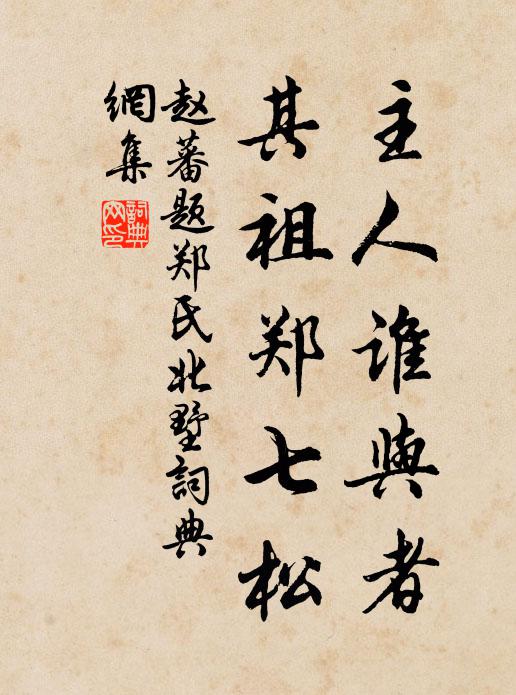 主人谁與者
其祖郑七松
赵蕃题郑氏北墅詞典
網集
詞典
网印